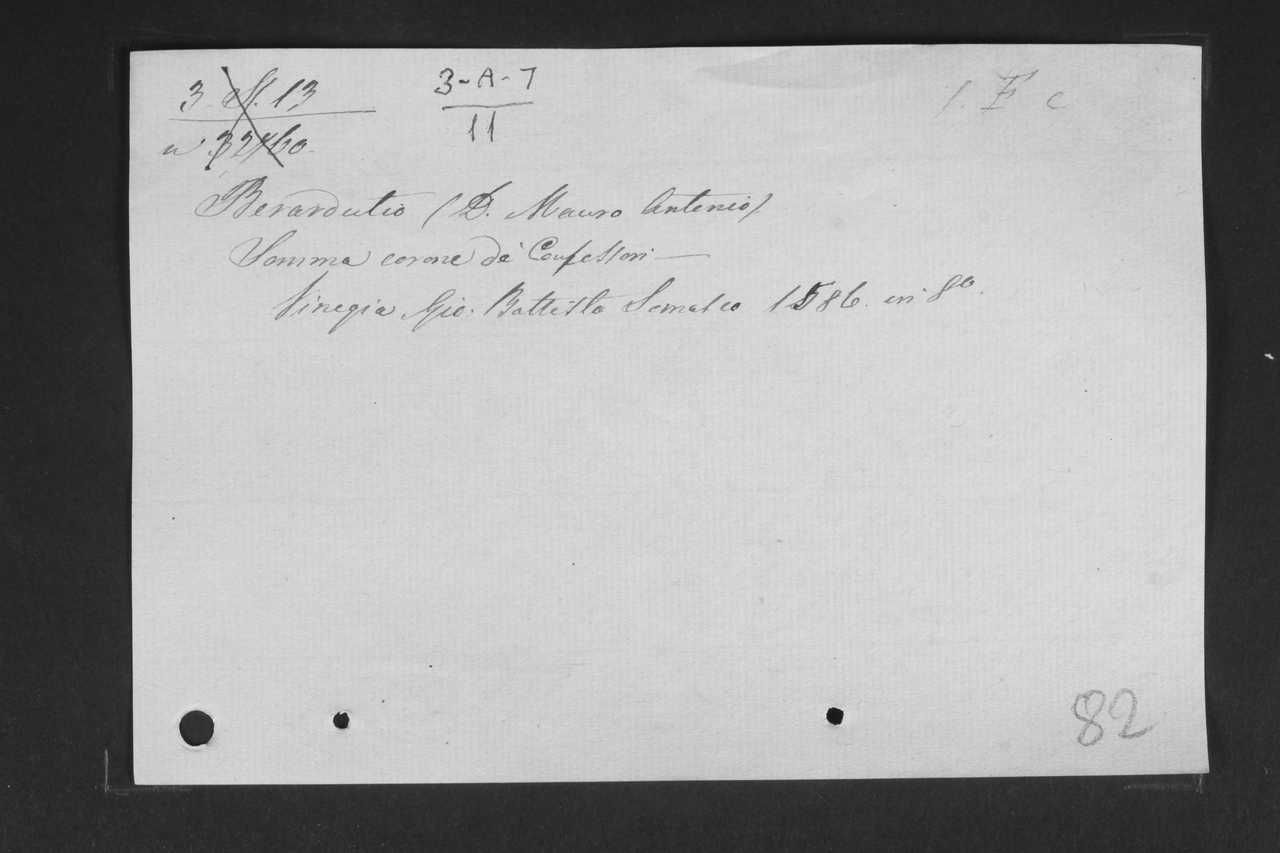 3 - A - 7
11
Berardutio (D. Mauro Antonio)
Somma corone de' Confessori —
Vinegia Gio. Battista Somasco 1586. in 8o.
82